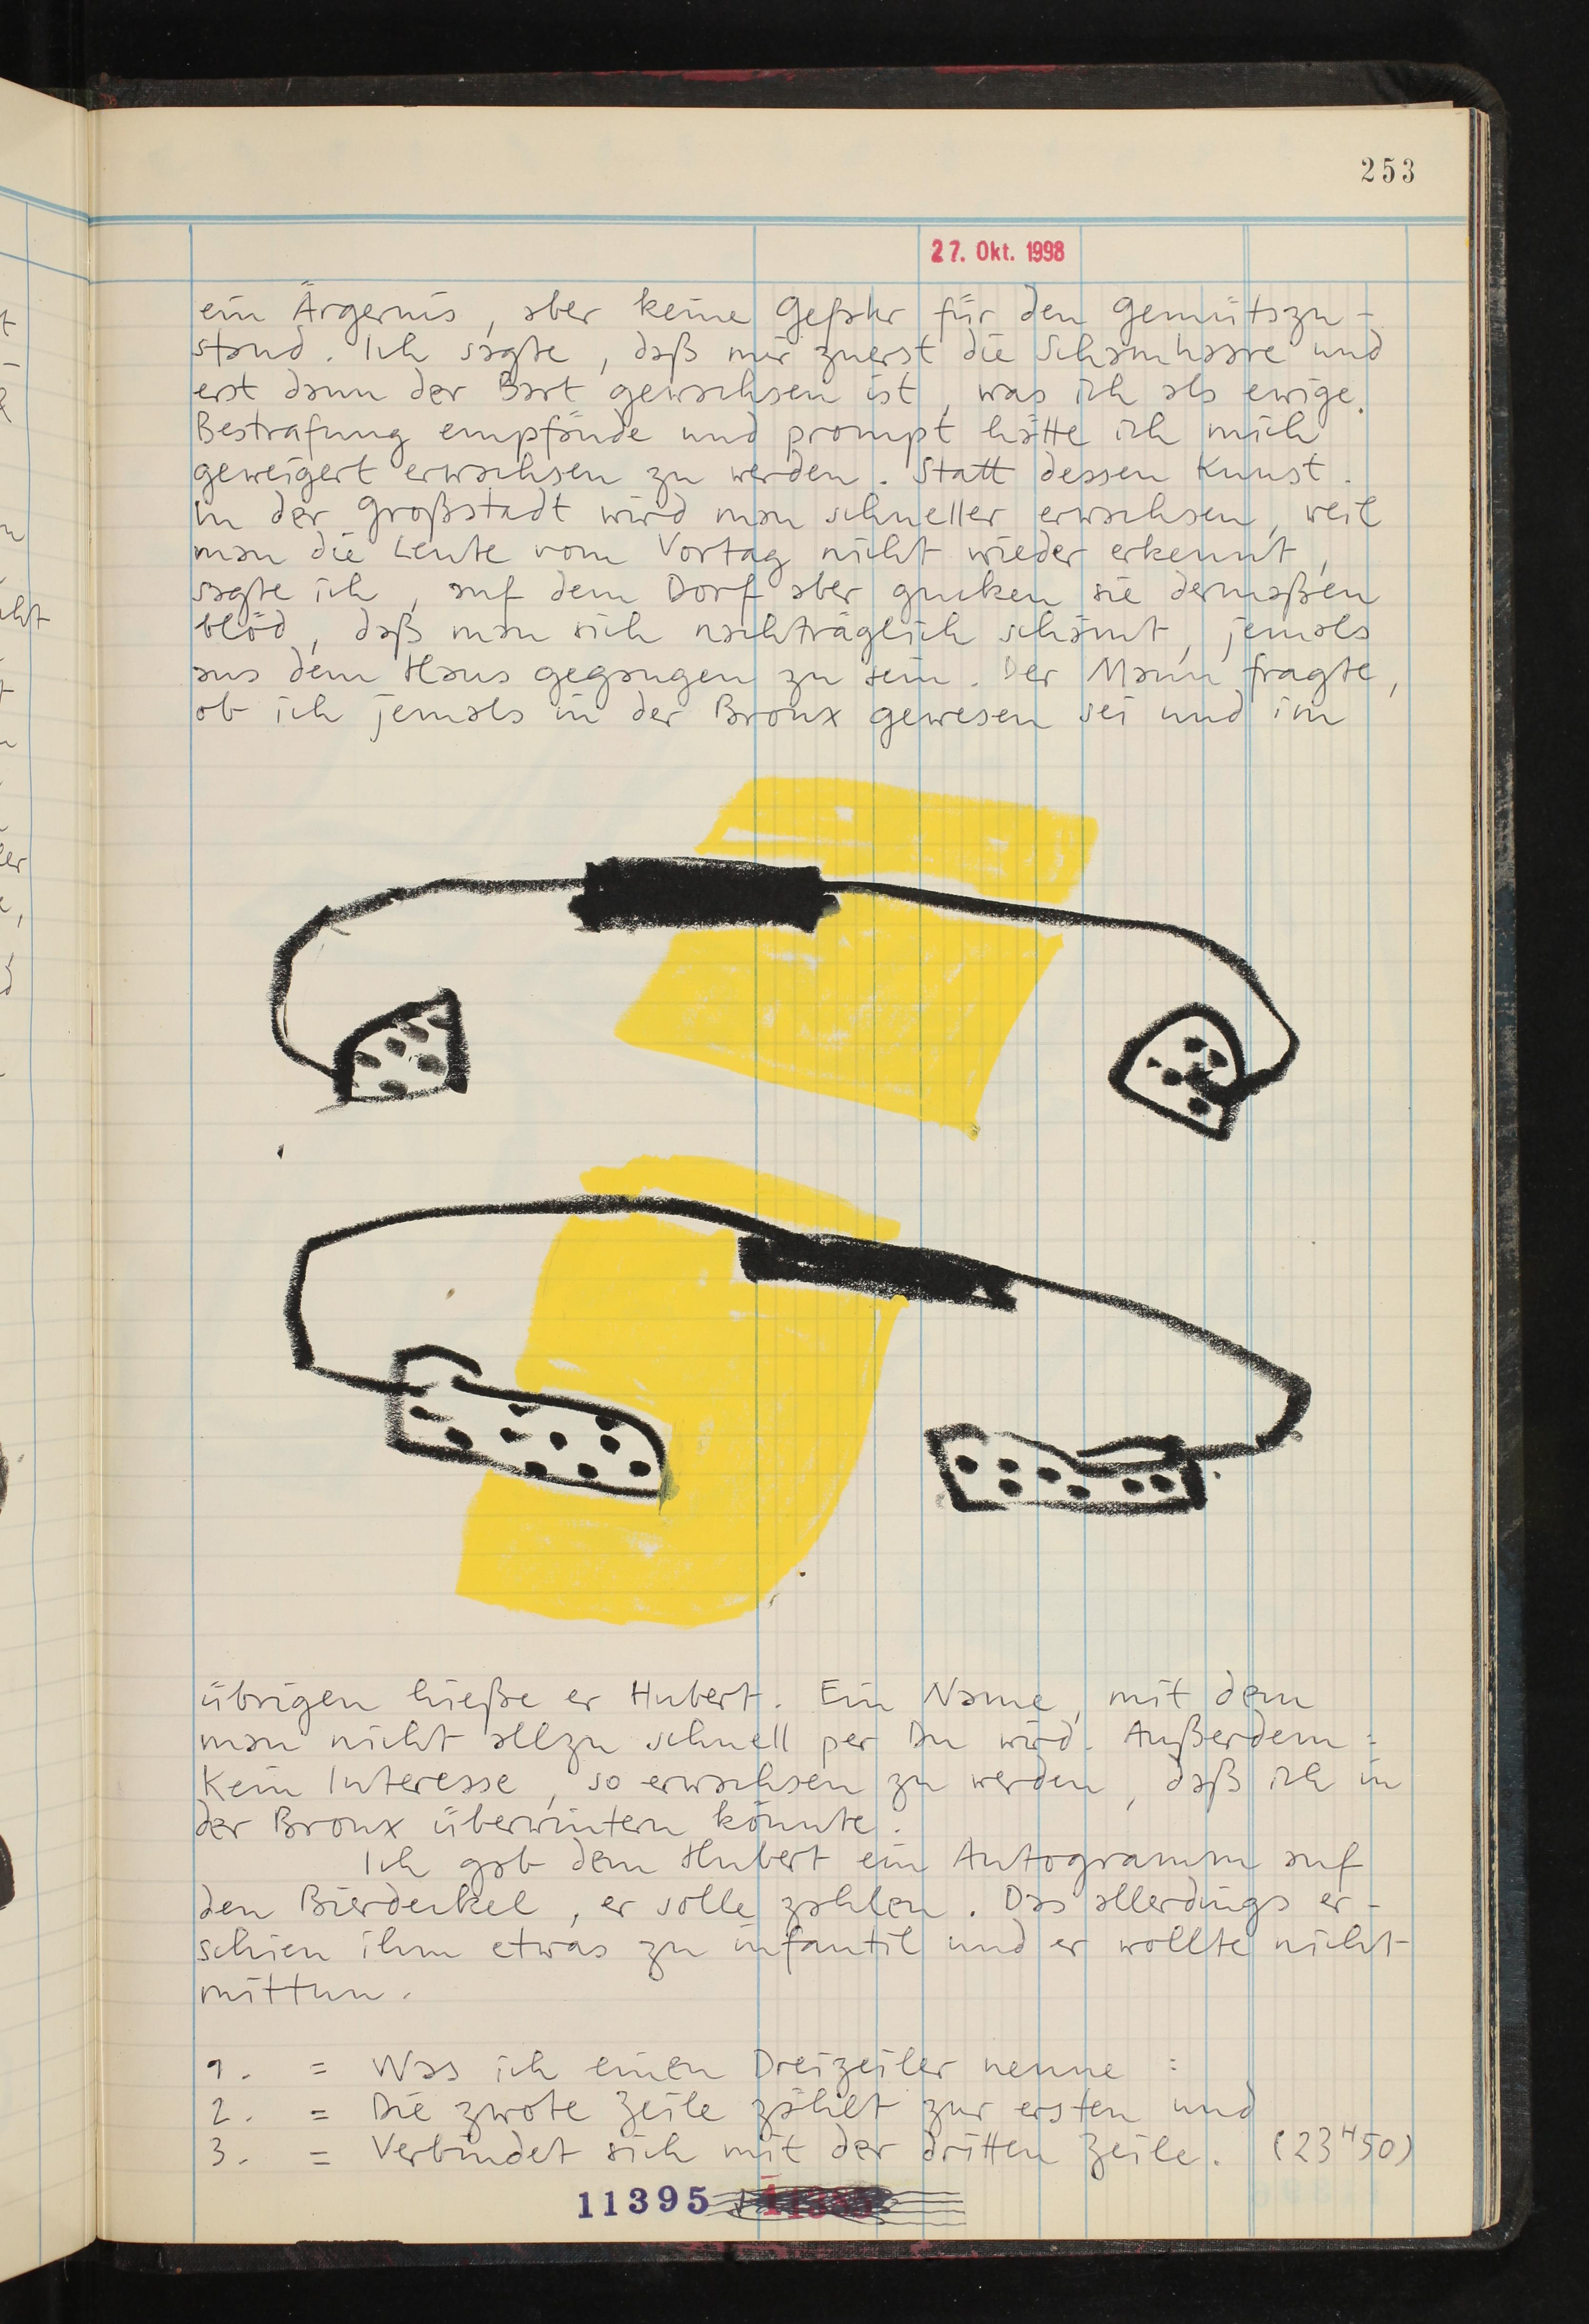 253
27. Okt. 1998
ein Ärgernis, aber keine Gefahr für den Gemütszu-
stand. Ich sagte, daß mir zuerst die Schamhaare und
erst dann der Bart gewachsen ist, was ich als ewige
Bestrafung empfände und prompt hätte ich mich
geweigert erwachsen zu werden. Statt dessen Kunst.
In der Großstadt wird man schneller erwachsen, weil
man die Leute vom Vortag nicht wieder erkennt,
sagte ich, auf dem Dorf aber gucken sie dermaßen
blöd, daß man sich nachträglich schämt, jemals
aus dem Haus gegangen zu sein. Der Mann fragte,
ob ich jemals in der Bronx gewesen sei und im
übrigen hieße er Hubert. Ein Name, mit dem
man nicht allzu schnell per Du wird. Außerdem:
Kein Interesse, so erwachsen zu werden, daß ich in
der Bronx überwintern könnte.
Ich gab dem Hubert ein Autogramm auf
den Bierdeckel, er solle zahlen. Das allerdings er-
schien ihm etwas zu infantil und er wollte nicht
mittun.
1. = Was ich einen Dreizeiler nenne:
2. = Die zwote Zeile zählt zur ersten und
3. = Verbindet sich mit der dritten Zeile. (23H50)
11395